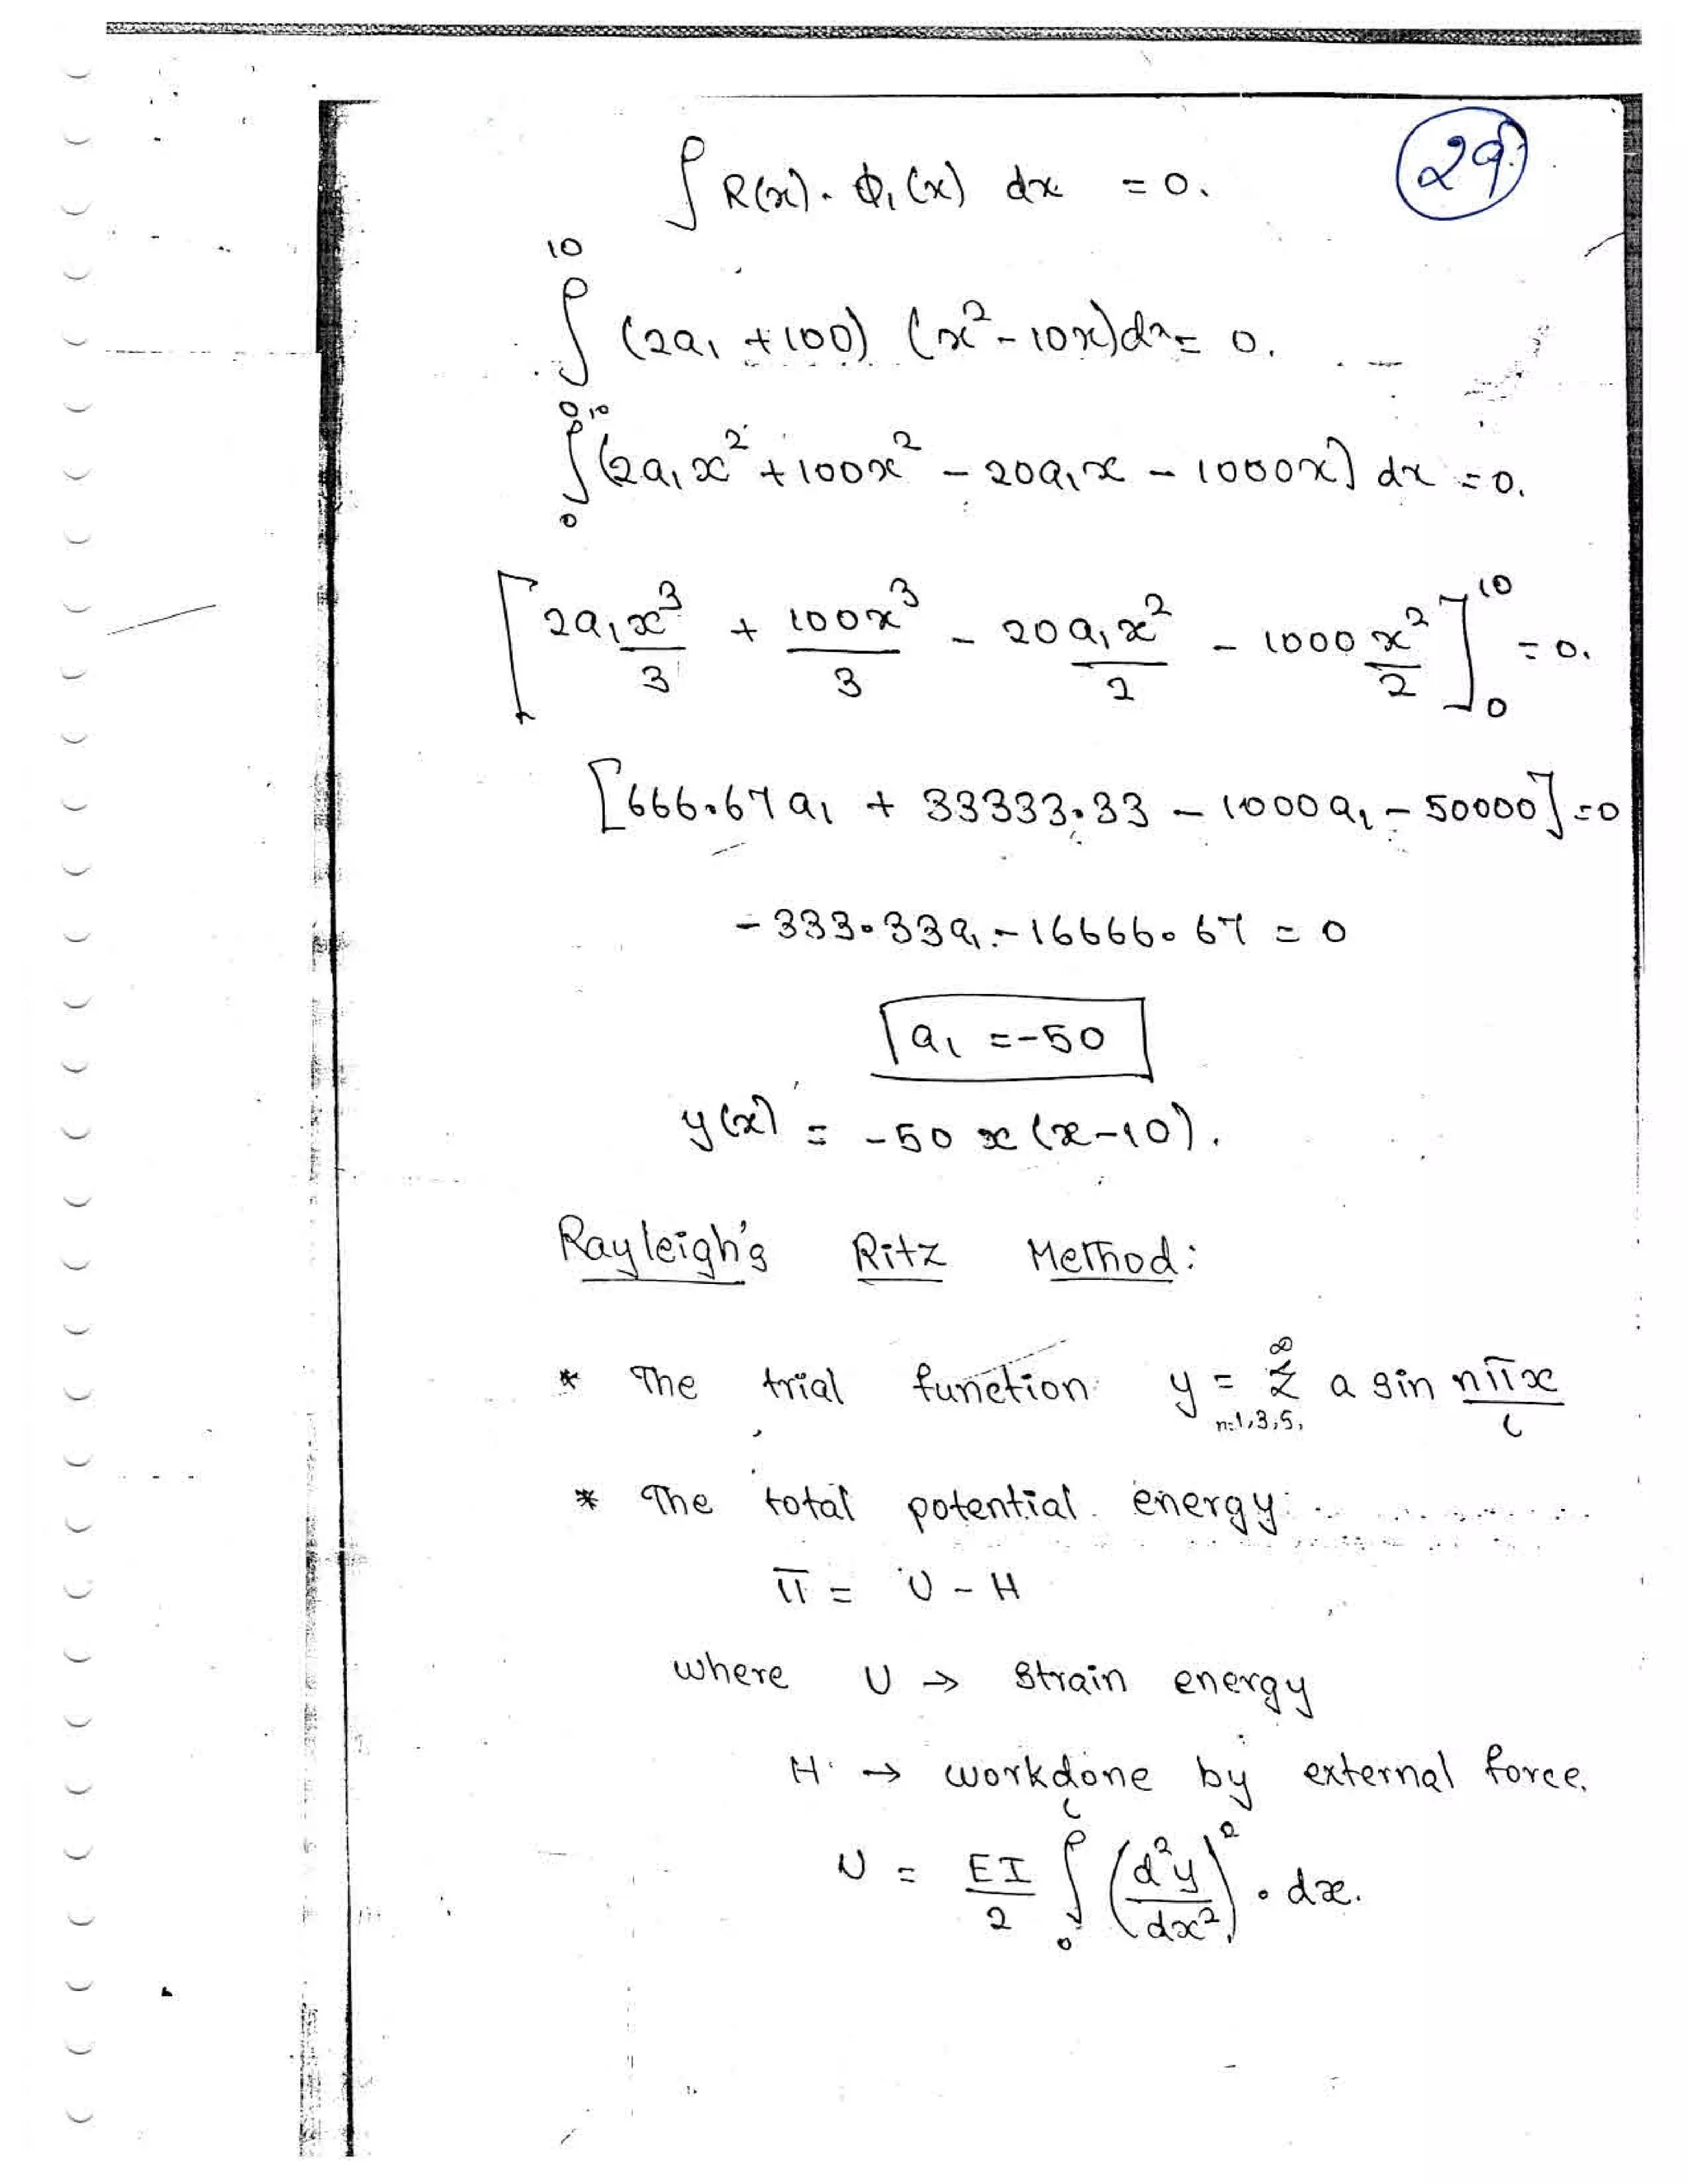 29
∫ R(x). Φ₁(x) dx = 0.
∫₀¹⁰ (2a₁ + 100) (x² - 10x)dx = 0.
∫₀¹⁰ (2a₁x² + 100x² - 20a₁x - 1000x) dx = 0.
[2a₁x³/3 + 100x³/3 - 20a₁x²/2 - 1000x²/2]₀¹⁰ = 0.
[666.67a₁ + 33333.33 - 1000a₁ - 50000] = 0
- 333.33a₁ - 16666.67 = 0
a₁ = -50
y(x) = -50 x (x-10).
Rayleigh's Ritz Method:
* The trial function y = Σ^∞_{n=1,3,5,} a sin nπx/l
* The total potential energy:
π = U - H
where U → Strain energy
H → workdone by external force.
U = EI/2 ∫₀ˡ (d²y/dx²)² . dx.